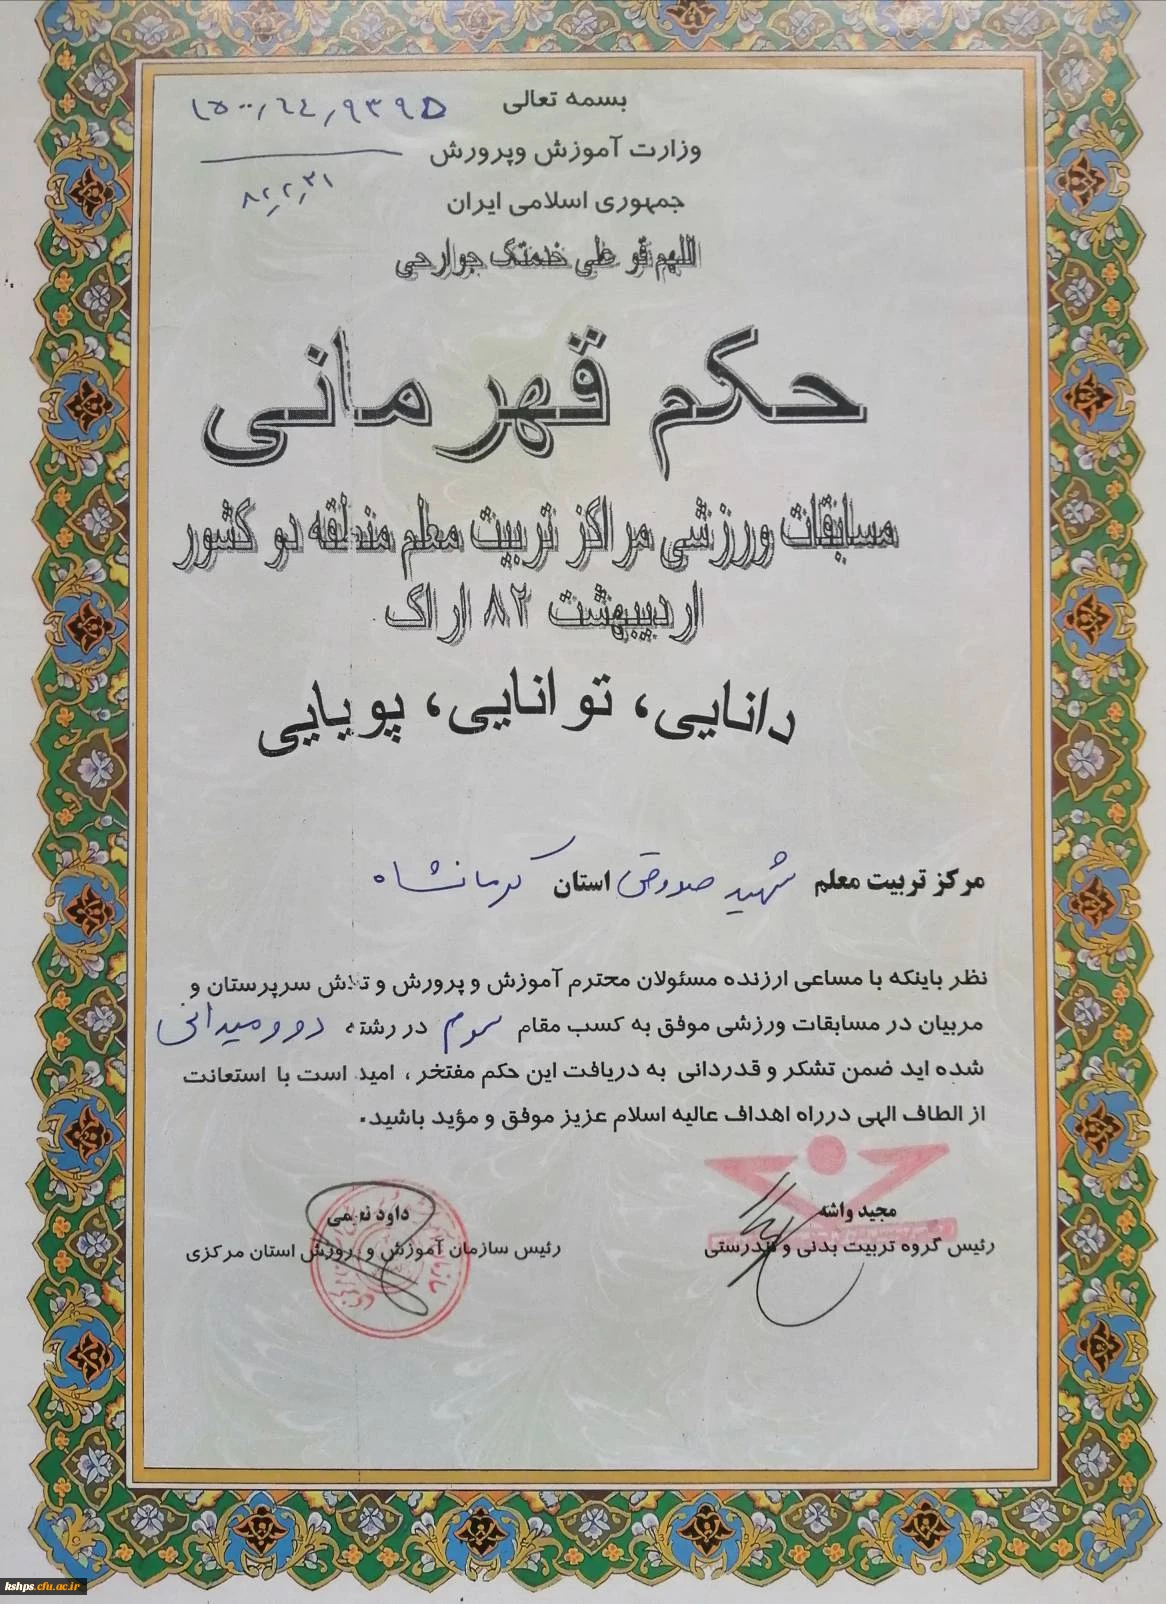 بسمه تعالی
وزارت آموزش وپرورش
جمهوری اسلامی ایران
۸۲٫۲٫۳۱
اللهم قو علی خدمتک جوارحی
حکم قهرمانی
مسابقات ورزشی مراکز تربیت معلم منطقه دو کشور
اردیبهشت ۸۲ اراک
دانایی، توانایی، پویایی
مرکز تربیت معلم شهید صدوقی استان کرمانشاه
نظر باینکه با مساعی ارزنده مسئولان محترم آموزش و پرورش و تلاش سرپرستان و
مربیان در مسابقات ورزشی موفق به کسب مقام سوم در رشته دو و میدانی
شده اید ضمن تشکر و قدردانی به دریافت این حکم مفتخر ، امید است با استعانت
از الطاف الهی درراه اهداف عالیه اسلام عزیز موفق و مؤید باشید.
مجید واشه
رئیس گروه تربیت بدنی و تندرستی
داود نعیمی
رئیس سازمان آموزش و پرورش استان مرکزی
kshps.cfu.ac.ir